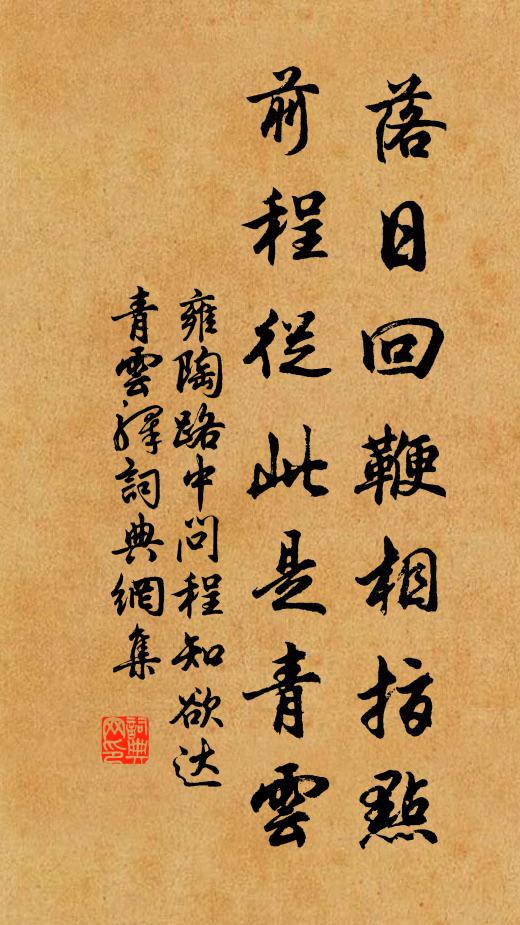 落日回鞭相指點
前程從此是青雲
雍陶路中問程知欲达
青雲驛詞典網集
詞典
网印